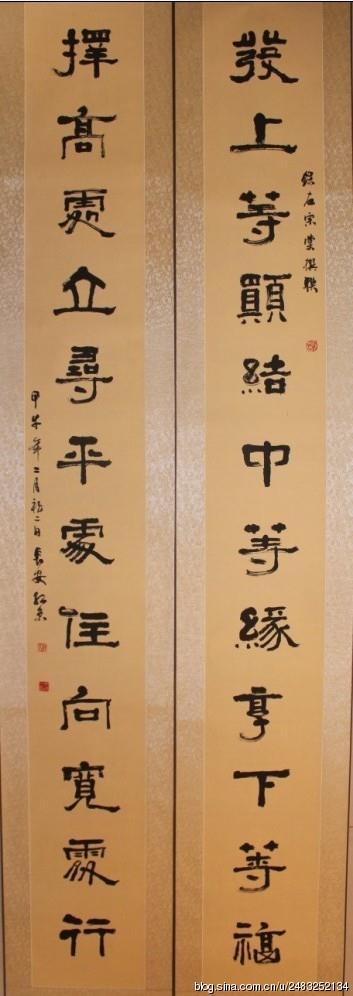 發上等願結中等緣享下等福
錄左宗棠撰聯
擇高處立尋平處住向寬處行
甲午年二月初二日長安
blog.sina.com.cn/u/2483252134